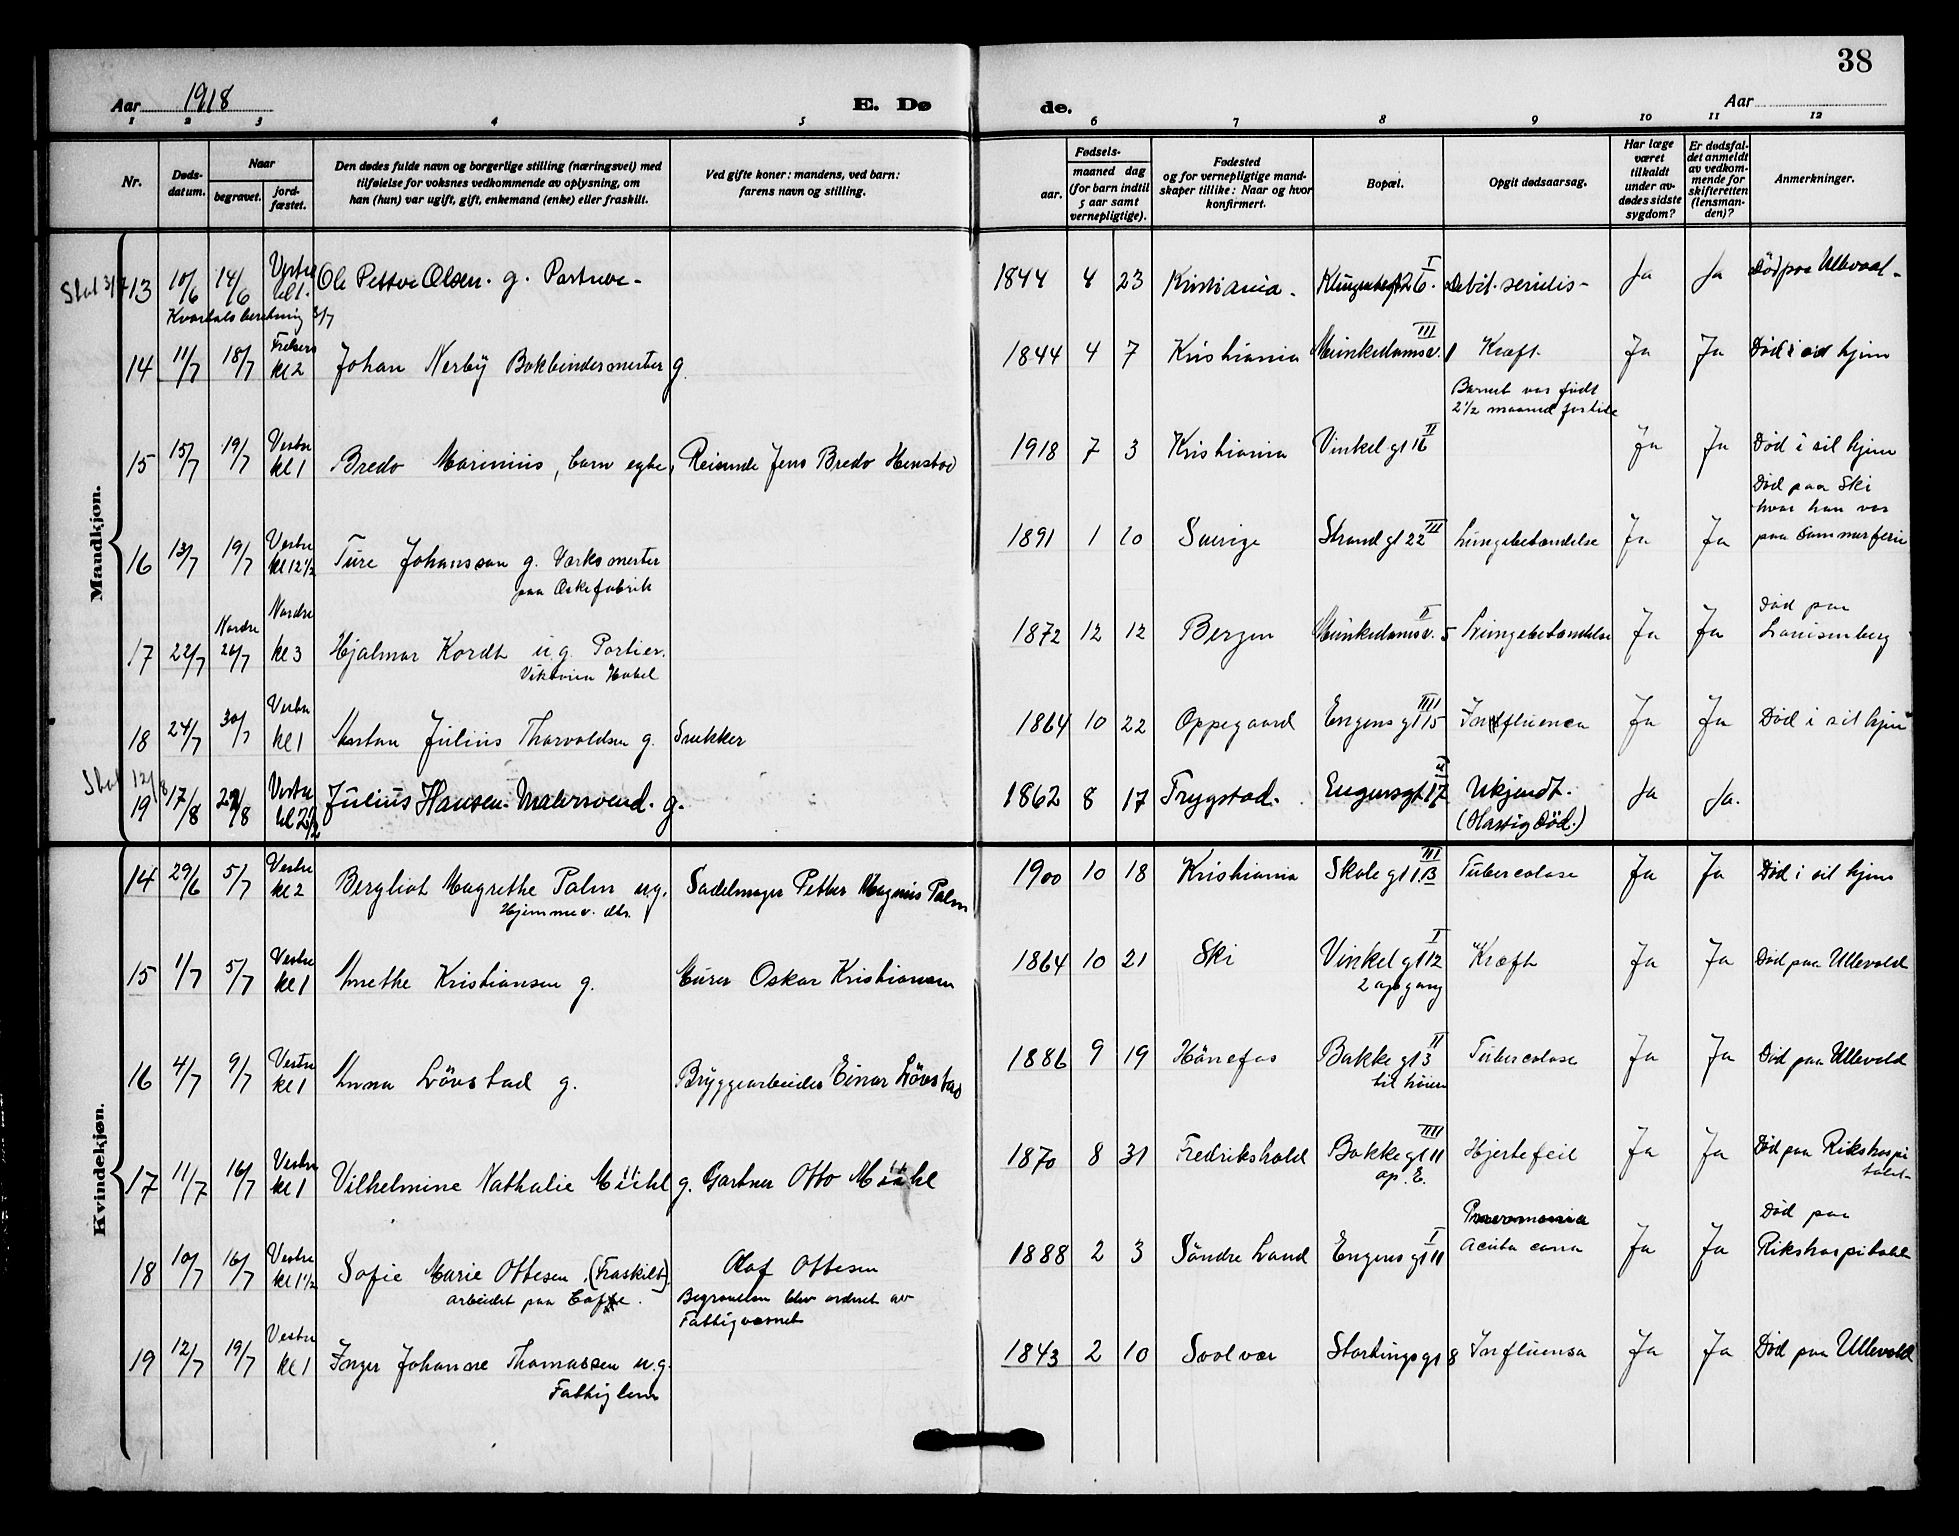 38
Aar 1918
E. Dø
de.
Aar
1 2 3 4 5 6 7 8 9 10 11 12
Nr.
Døds-
datum.
Naar
begravet.
jord-
fæstet.
Den dødes fulde navn og borgerlige stilling (næringsvei) med
tilføielse for voksnes vedkommende av oplysning, om
han (hun) var ugift, gift, enkemand (enke) eller fraskilt.
Ved gifte koner: mandens, ved barn:
farens navn og stilling.
Fødsels-
aar.
maaned dag
(for barn indtil
5 aar samt
vernepligtige).
Fødested
og for vernepligtige mand-
skaper tillike: Naar og hvor
konfirmert.
Bopæl.
Opgit dødsaarsag.
Har læge
været
tilkaldt
under av-
dødes sidste
sygdom?
Er dødsfal-
det anmeldt
av vedkom-
mende for
skifteretten
(lensman-
den)?
Anmerkninger.
Mandkjøn.
13 10/6 14/6 Vestre kl 1. Ole Petter Olsen. g. 1844 4 23 Kristiania. 26. I debil. senilis Ja Ja Død paa Ullevaal
Kvartalsberetning 3/7
14 11/7 18/7 Frelsers kl 2 Johan Nerby Bokbindermester g. 1844 4 7 Kristiania Munkedamsv. 1 III Kræft Ja Ja Død i sit hjem
Barnet var født
2 1/2 maaned for tide
15 15/7 19/7 Vestre kl 1 Bredo Marinius, barn egte, Reisende Jens Bredo 1918 7 3 Kristiania Vinkelgt 16 II Ja Ja Død i sit hjem
16 13/7 19/7 Vestre kl 12 1/2 Ture Johansson g. Verksmester 1891 1 10 Sverige Strandgt 22 III Lungebetændelse Ja Ja Død paa Ski
hvor han var
paa sommerferie
paa Eskefabrik
17 22/7 Nordre 26/7 Nordre kl 3 Hjalmar Kordt u.g. Portier. 1872 12 12 Bergen Munkedamsv. 5 II Lungebetændelse Ja Ja Død paa
Lovisenberg
Viktoria Hotel
18 24/7 30/7 Vestre kl 1 Anton Julius Thorvaldsen g. Snekker 1864 10 22 Oppegaard Engensgt 15 III Influenca Ja Ja Død i sit hjem
19 17/8 Vestre kl 2 1/2 Julius Hansen. Malersvend. g. 1862 8 17 Trygstad. Engensgt. 17 Ukjendt. Ja Ja.
(Hastig død.)
Kvindekjøn.
14 29/6 5/7 Vestre kl 2 Bergliot Magrethe Palm u.g. Sadelmager Petter Magnus Palm 1900 10 18 Kristiania Skolegt 13 III Tubercolose Ja Ja Død i sit hjem
Hjemmev. dtr.
15 1/7 5/7 Vestre kl 1 Anethe Kristiansen g. Murer Oskar Kristiansen 1864 10 21 Ski Vinkelgt 12 I Kræft Ja Ja Død paa Ullevold
2 opgang
16 4/7 9/7 Vestre kl 1 Anna Lövstad g. Bryggearbeider Einar Lövstad 1886 9 19 Hönefos Bakkegt 3 II Tubercolose Ja Ja Død paa Ullevold
til höire
17 11/7 16/7 Vestre kl 1 Vilhelmine Nathalie Mühl g. Gartner Otto Mühl 1870 8 31 Fredrikshald Bakkegt 11 IIII Hjertefeil Ja Ja Død paa Rikshospi
talet
op. E.
18 10/7 16/7 Vestre kl 1 1/2 Sofie Marie Ottesen. (Fraskilt). Olaf Ottesen 1888 2 3 Söndre Land Engensgt 11 I Acuta Ja Ja Død paa
Rikshospitalet
arbeidet paa Caffe.
Begravelsen blev ordnet av
Fattigvæsnet
19 12/7 19/7 Vestre kl 1 Inger Johanne Thomassen u.g. 1843 2 10 Soolvær Stortingsgt 8 Influensa Ja Ja Død paa Ullevold
Fattiglem